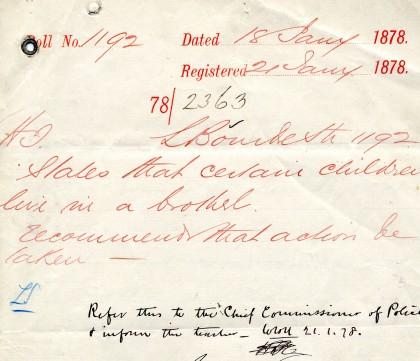 Roll No. 1192 Dated 18 Jany 1878.
Registered 21 Jany 1878.
78/2363
H.T. L Bourke St 1192
States that certain children
live in a brothel.
Recommends that action be
taken —
Refer this to the Chief Commissioner of Police
& inform the teacher – 21.1.78.